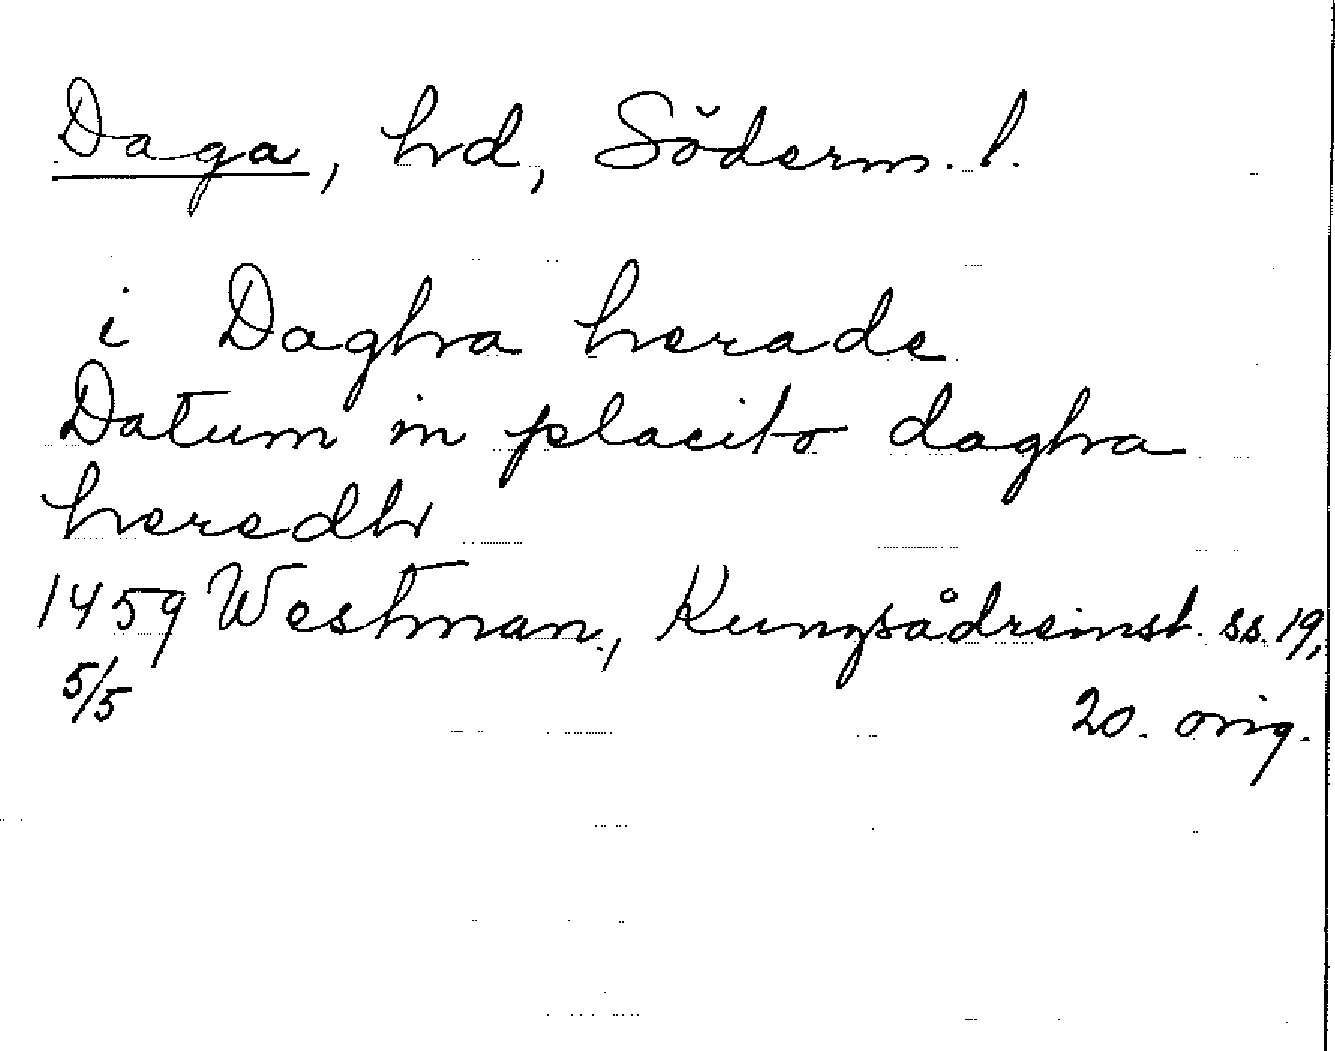 Daga, hd, Söderm. l.
i Dagha herade
Datum in placito dagha
heredh
1459 Westman, Kungsådreinst. ss. 19,
5/5
20. orig.